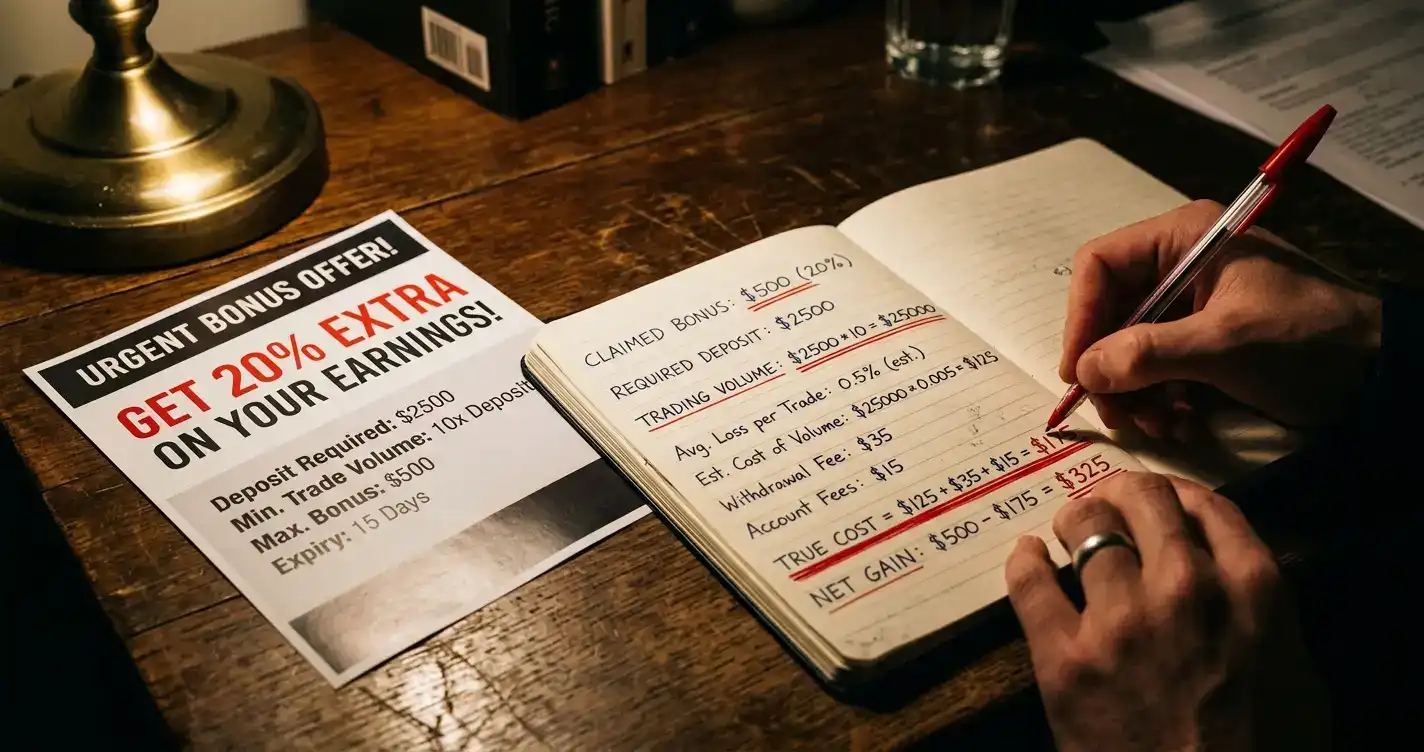 URGENT BONUS OFFER!
GET 20% EXTRA
ON YOUR EARNINGS!
Deposit Required: $2500
Min. Trade Volume: 10x Deposit
Max. Bonus: $500
Expiry: 15 Days
CLAIMED BONUS: $500 (20%)
REQUIRED DEPOSIT: $2500
TRADING VOLUME: $2500*10 = $25000
Avg. Loss per Trade: 0.5% (est.)
Est. Cost of Volume: $25000*0.005 = $125
Withdrawal Fee: $35
Account Fees: $15
TRUE COST = $125 + $35 + $15 =
NET GAIN: $500 - $175 = $325